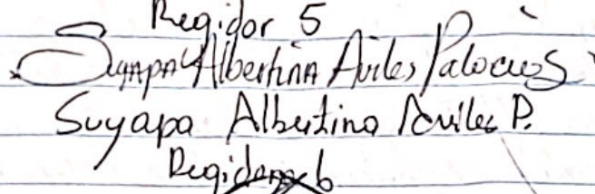 Regidor 5
Suyapa Albertina Aviles Palacios
Suyapa Albertina Aviles P.
Regidora 6